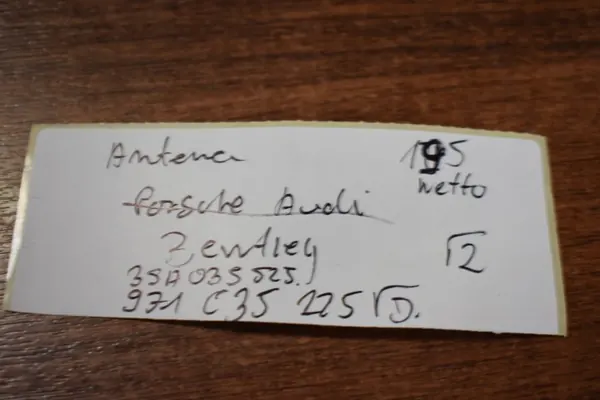 Antena 195
netto
Porsche Audi
Bentley √2
3SA 035 525.
971 C35 225 √D.